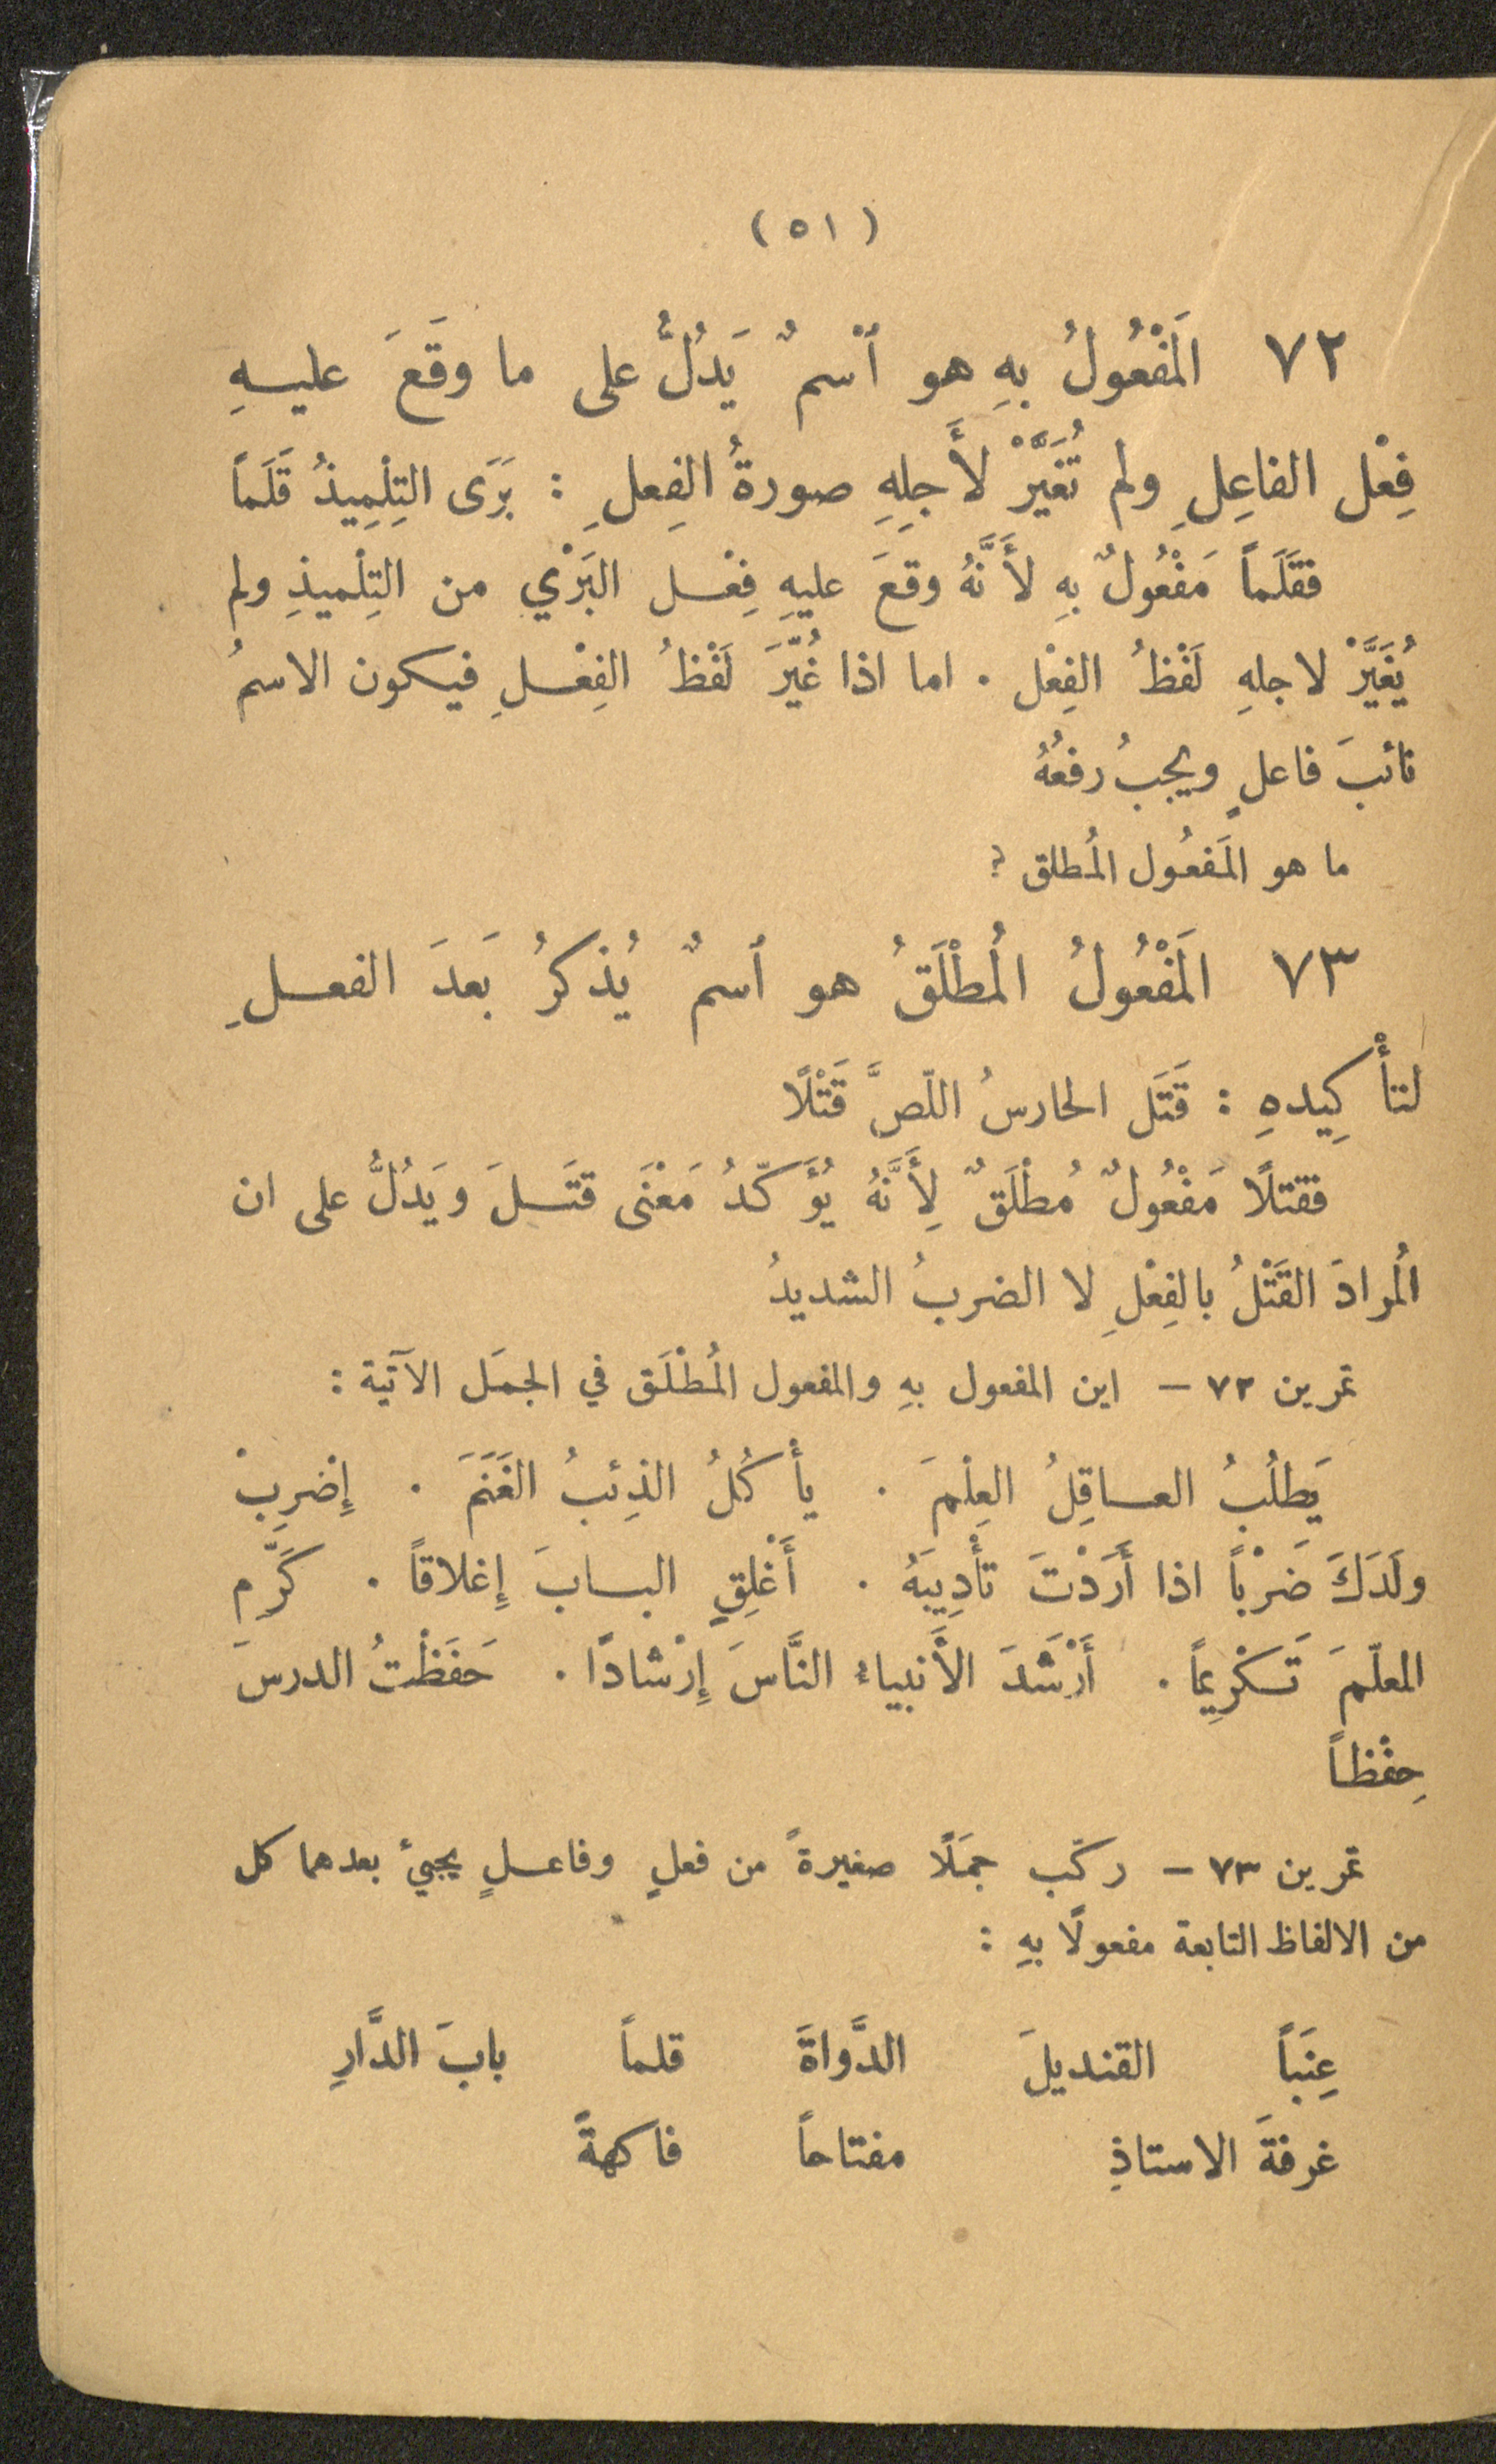 ( ٥١ )
٧٢ المَفْعُولُ بهِ هو ٱسْمٌ يَدُلُّ على ما وقَعَ عليهِ
فِعْل الفاعِلِ ولم تُغَيَّرْ لأَجلِهِ صورةُ الفِعلِ : بَرَى التِلِميذُ قَلَماً
فقَلَماً مَفْعُولٌ بهِ لأَنَّهُ وقعَ عليهِ فِعْل البَرْي من التِلْميذِ ولم
يُغَيَّرْ لاجلهِ لَفْظُ الفِعْل . اما اذا غُيّرَ لَفْظُ الفِعْلِ فيكون الاسمُ
نائبَ فاعلٍ ويجبُ رفعُهُ
ما هو المَفعُول المُطلق ؟
٧٣ المَفْعُولُ المُطْلَقُ هو ٱسمٌ يُذكرُ بَعدَ الفعلِ
لتأْكِيدهِ : قَتَل الحارسُ اللّصَّ قَتْلًا
فقتلًا مَفْعُولٌ مُطْلَقٌ لِأَنَّهُ يُؤَكّدُ مَعْنَى قتَلَ ويَدُلُّ على ان
المُرادَ القَتْلُ بالفِعْلِ لا الضربُ الشديدُ
تمرين ٧٢ – اين المفعول بهِ والمفعول المُطْلَق في الجمَل الآتية :
يَطلُبُ العاقِلُ العِلْمَ . يأْكُلُ الذِئبُ الغَنَمَ . إِضرِبْ
ولَدَكَ ضَرْباً اذا أَرَدْتَ تأْدِيبَهُ . أَغْلِقِ البابَ إِغلاقاً . كَرِّم
المعلّمَ تَكْرِيماً . أَرْشَدَ الأَنبياء النَّاسَ إِرْشادًا . حَفَظْتُ الدرسَ
حِفْظاً
تمرين ٧٣ – ركّب جمَلًا صغيرةً من فعلٍ وفاعلٍ يجيءُ بعدهما كل
من الالفاظ التابعة مفعولًا بهِ :
عِنَباً القنديلَ الدَّواةَ قلماً بابَ الدَّارِ
غرفةَ الاستاذِ مفتاحاً فاكهةً